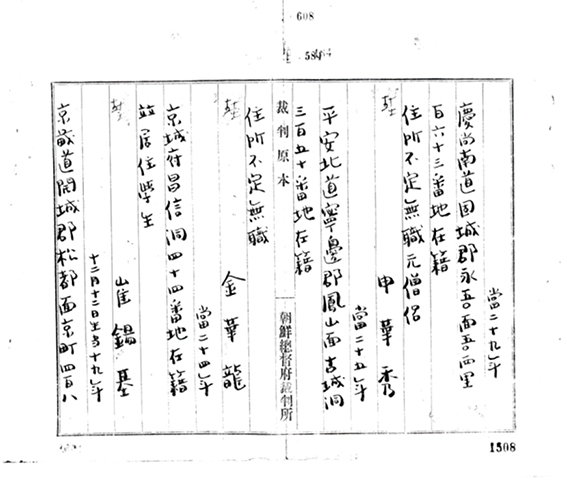 608
584
當二十九年
慶尚南道固城郡永吾面吾西里
百六十三番地在籍
住所不定無職元僧侶
申華秀
當二十五年
平安北道寧邊郡鳳山面吉城洞
三百五十番地在籍
裁判原本
朝鮮總督府裁判所
住所不定無職
金華龍
當二十四年
京城府昌信洞四十四番地在籍
並居住學生
崔錫基
十二月十二日生當十九年
京畿道開城郡松都面京町四百八
1508